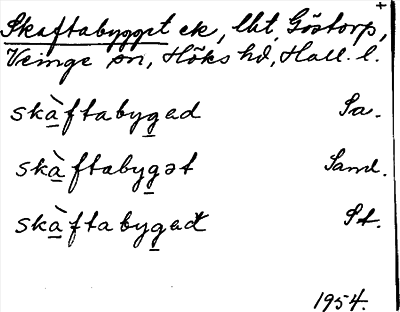 +
Skaftabygget ek, lht, Göstorp,
Veinge sn, Höks hd, Hall. l.
skàftabygad Sa.
skàftabygət Saml.
skàftabygat St.
1954.